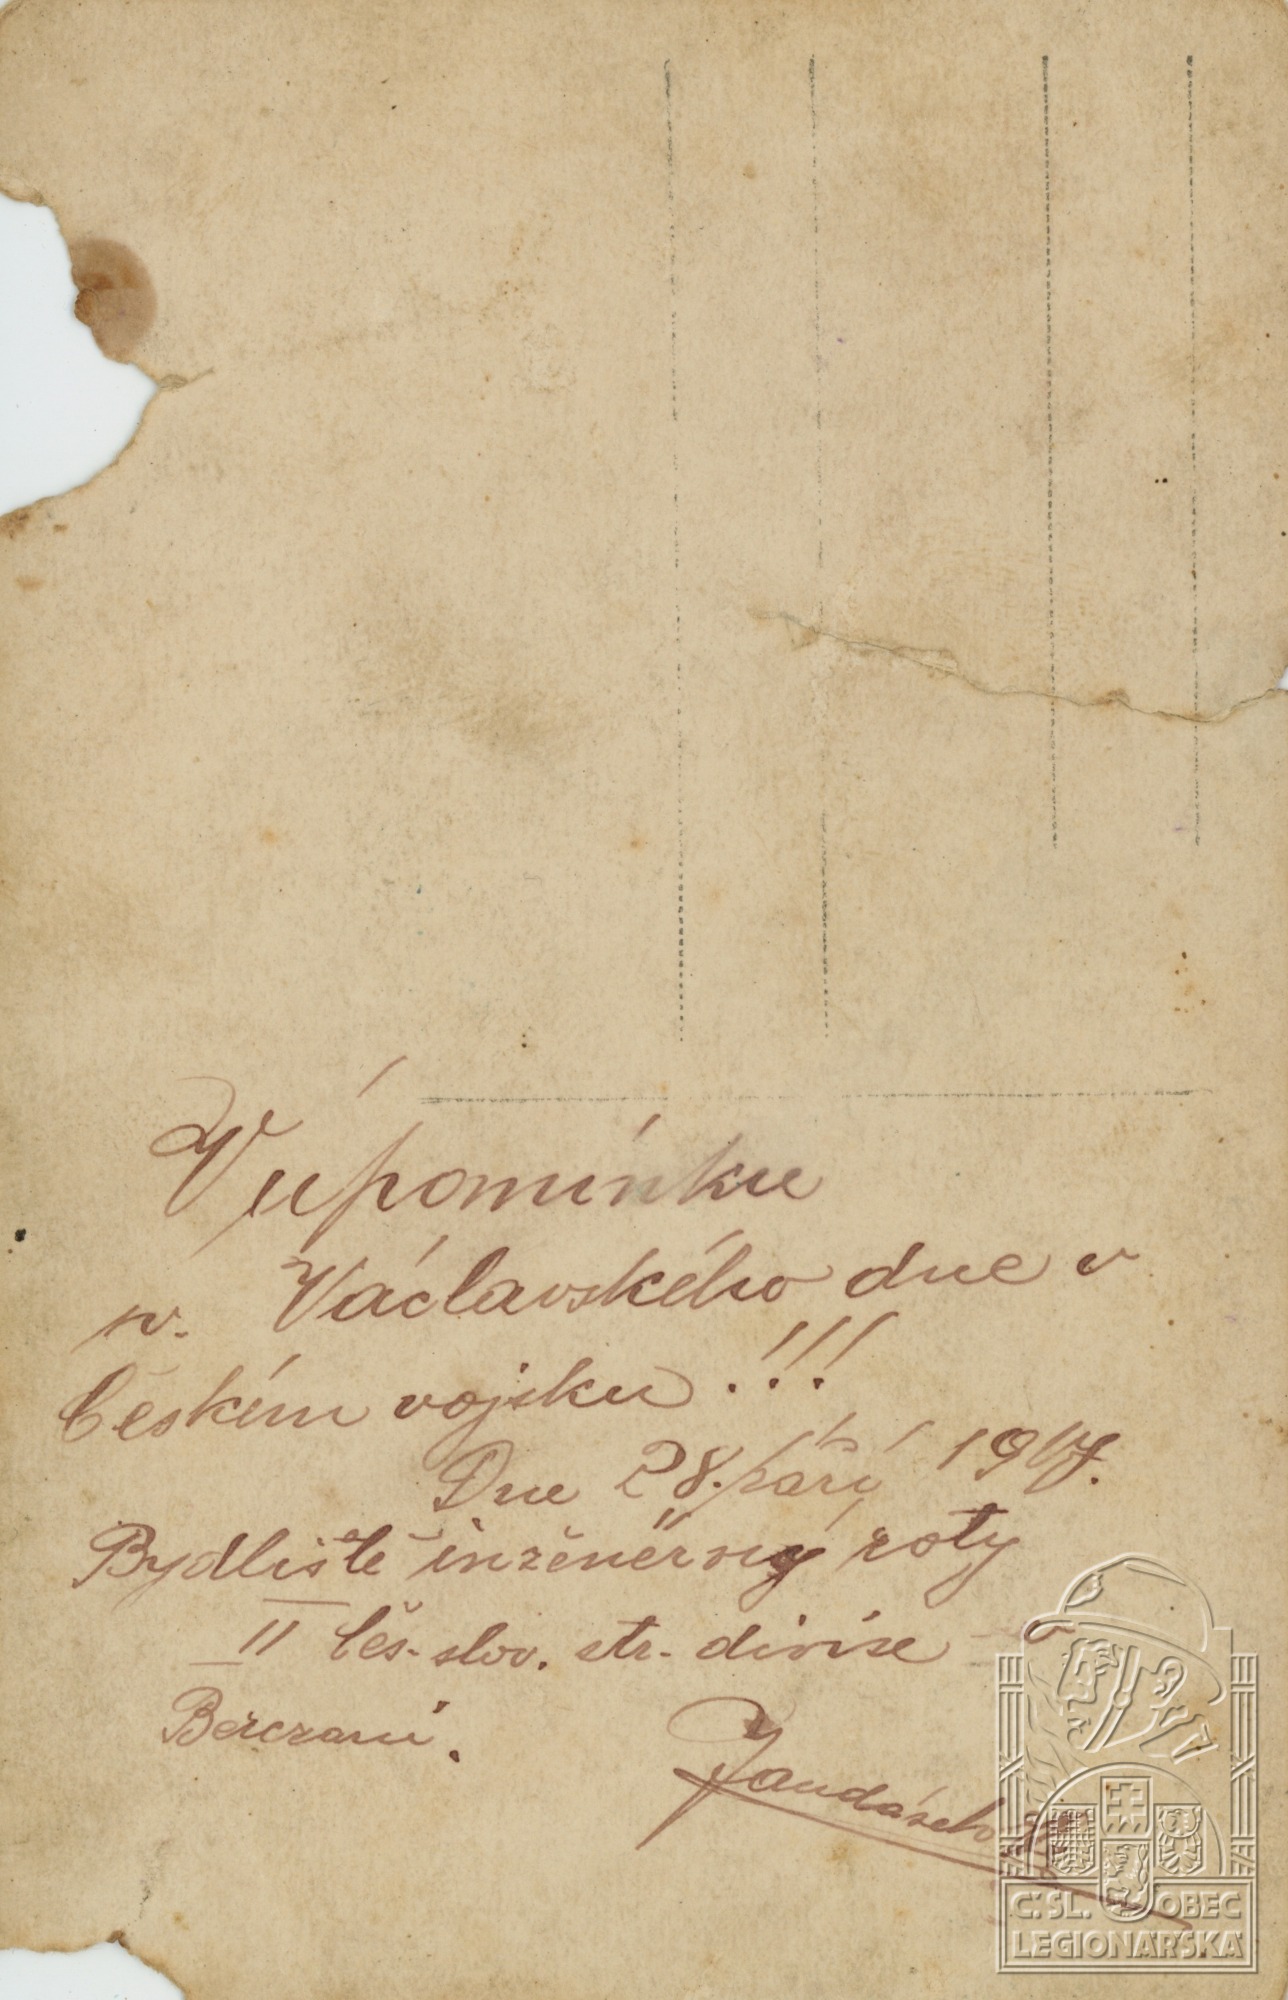 V úpomínku
sv. Václavského dne v
Českém vojsku!!!
Dne 28. září 1917.
Bydliště inženěrný roty
II čes.-slov. str. divise v
Berezani.
Jandásek
Č.SL. OBEC
LEGIONÁŘSKÁ